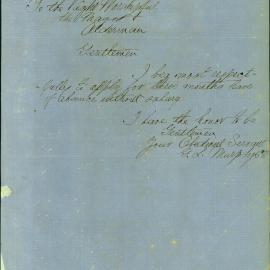 To the Right Worshipful
the Mayor
Alderman
Gentlemen
I beg most respect-
fully to apply for three months leave
of absence without salary
I have the honor to be
Gentlemen
Your Obedient Servant